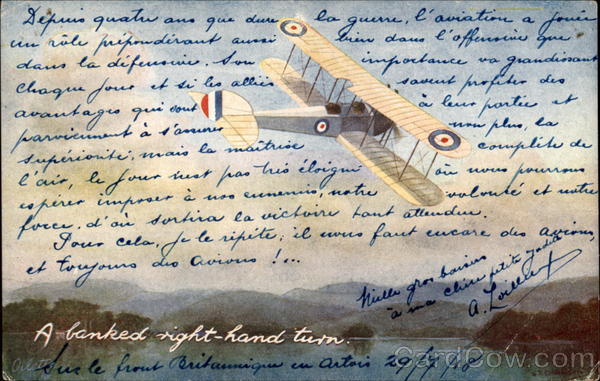 Depuis quatre ans que dure la guerre, l'aviation a jouée
un rôle prépondérant aussi bien dans l'offensive que
dans la défensive. Son importance va grandissant
chaque jour et si les alliés savent profiter des
avantages qui sont à leur portée et
parviennent à s'assurer non plus, la
supériorité, mais la maîtrise complète de
l'air, le jour n'est pas très éloigné où nous pourrons
espérer imposer à nos ennemis, notre volonté et notre
force, d'où sortira la victoire tant attendue.
Pour cela, je le répète, il nous faut encore des avions,
et toujours des avions !...
Mille gros baisers
à ma chère petite
A.
A banked right-hand turn.
Sur le front Britannique en Artois 29
CardCow.com